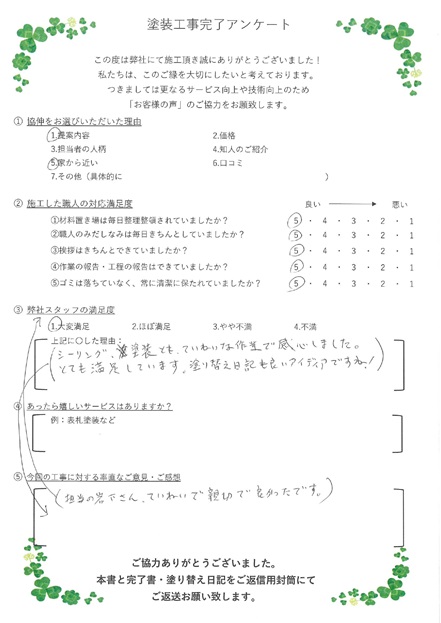 塗装工事完了アンケート
この度は弊社にて施工頂き誠にありがとうございました！
私たちは、このご縁を大切にしたいと考えております。
つきましては更なるサービス向上や技術向上のため
「お客様の声」のご協力をお願い致します。
① 協伸をお選びいただいた理由
1.提案内容 2.価格
3.担当者の人柄 4.知人のご紹介
5.家から近い 6.口コミ
7.その他（具体的に ）
② 施工した職人の対応満足度 良い 悪い
①材料置き場は毎日整理整頓されていましたか？ 5・4・3・2・1
②職人のみだしなみは毎日きちんとしていましたか？ 5・4・3・2・1
③挨拶はきちんとできていましたか？ 5・4・3・2・1
④作業の報告・工程の報告はできていましたか？ 5・4・3・2・1
⑤ゴミは落ちていなく、常に清潔に保たれていましたか？ 5・4・3・2・1
③ 弊社スタッフの満足度
1.大変満足 2.ほぼ満足 3.やや不満 4.不満
上記に〇した理由：
シーリング、塗装とも、ていねいな作業で感心しました。
とても満足しています。塗り替え日記も良いアイディアですね！
④ あったら嬉しいサービスはありますか？
例：表札塗装など
⑤ 今回の工事に対する率直なご意見・ご感想
担当の岩下さん、ていねいで親切で良かったです。
ご協力ありがとうございました。
本書と完了書・塗り替え日記をご返信用封筒にて
ご返送お願い致します。